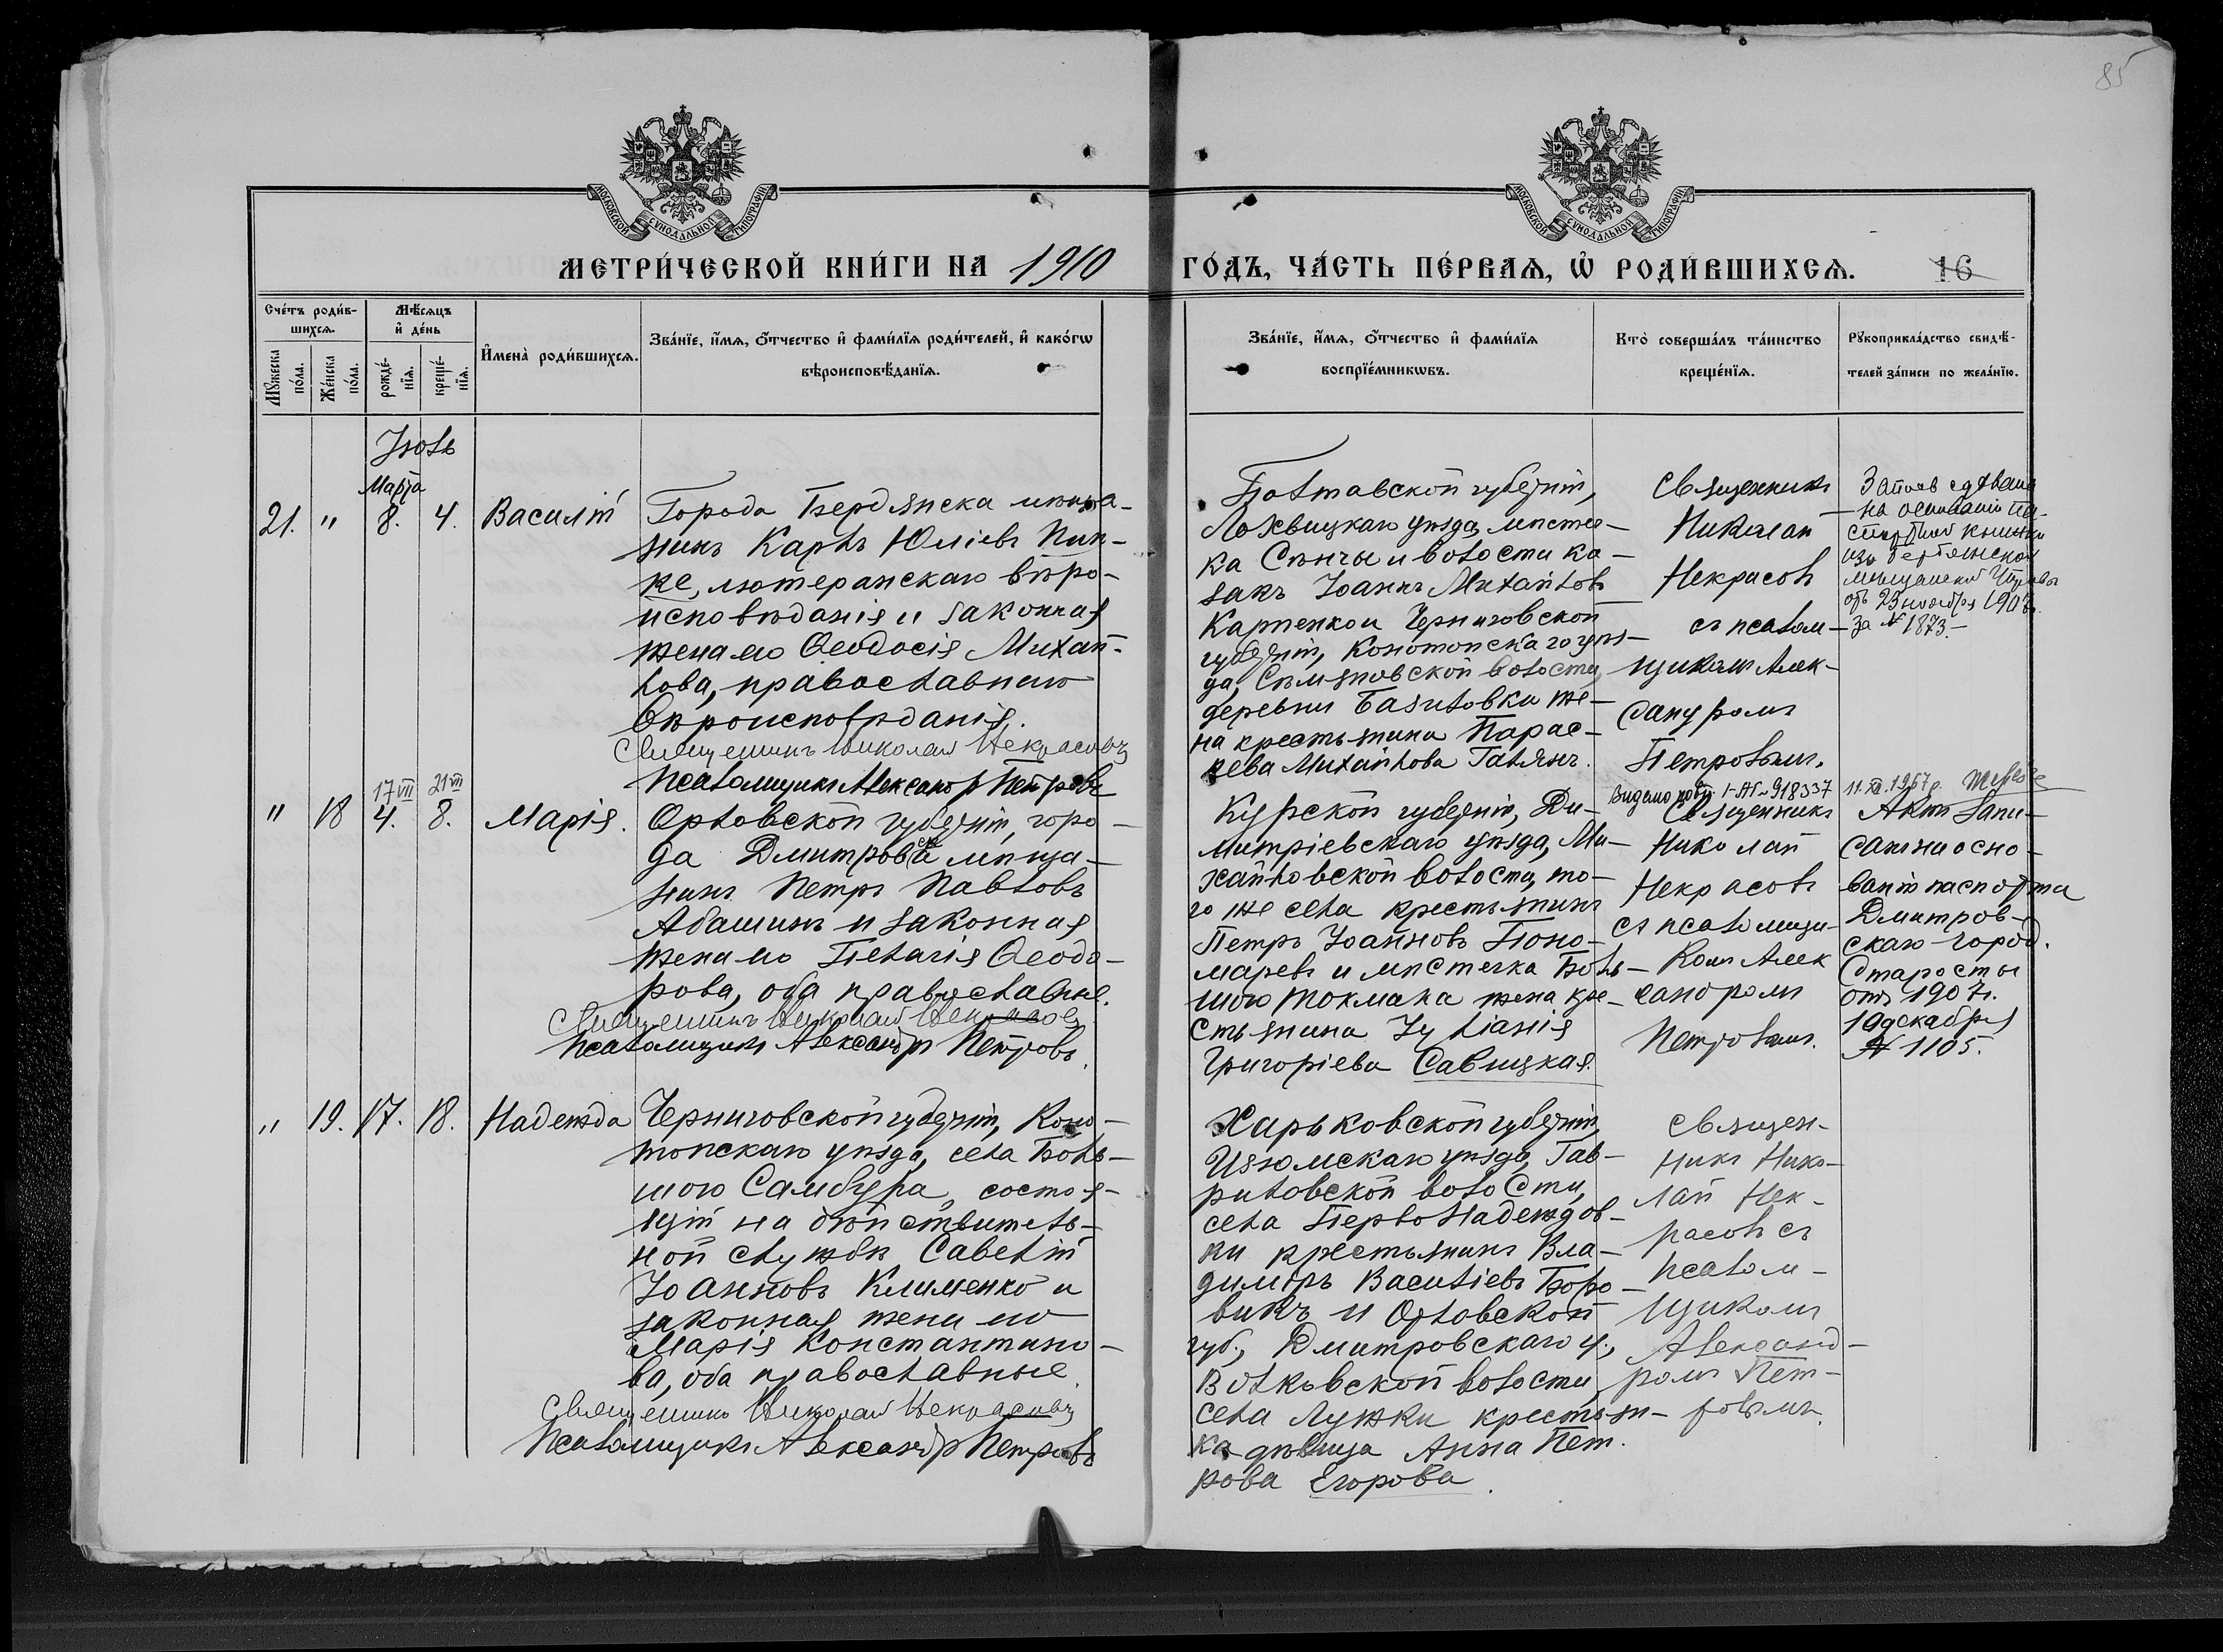 85
МОСКОВСКОЙ СУНОДАЛЬНОЙ ТИПОГРАФІИ
МОСКОВСКОЙ СУНОДАЛЬНОЙ ТИПОГРАФІИ
МЕТРИ́ЧЕСКОЙ КНИ́ГИ НА 1910
ГО́ДЪ, ЧА́СТЬ ПЕ́РВАѦ, Ѡ҆ РОДИ́ВШИХСѦ.
16
Сче́тъ роди́в-
шихсѧ.
Мꙋ́жеска
по́ла.
Же́нска
по́ла.
Мѣ́сѧцъ
и҆ де́нь
рожде́-
нїѧ.
креще́-
нїѧ.
И҆мена̀ роди́вшихсѧ.
Зва́нїе, и҆́мѧ, о҆́тчество и҆ фами́лїѧ роди́телей, и҆ како́гѡ
вѣроисповѣ́данїѧ.
Зва́нїе, и҆́мѧ, о҆́тчество и҆ фами́лїѧ
воспрїе́мникѡвъ.
Кто̀ соверша́лъ та́инство
креще́нїѧ.
Рꙋкоприкла́дство свидѣ́-
телей за́писи по жела́нїю.
Іюль
Марта
21. " 8. 4. Василій
Города Бердянска мѣща-
нинъ Карлъ Юліевъ Пин-
ке, лютеранскаго вѣро-
исповѣданія и законная
жена его Ѳеодосія Михай-
лова, православнаго
вѣроисповѣданія.
Священникъ Николай Некрасовъ
Псаломщикъ Александръ Петровъ
Полтавской губерніи,
Лохвицкаго уѣзда, мѣстеч-
ка Сѣнчы и волости ка-
закъ Іоаннъ Михайловъ
Карпенко и Черниговской
губерніи, Конотопскаго уѣз-
да, волости,
деревни Базиловки же-
на крестьянина Парас-
кева Михайлова
Священникъ
Николай
Некрасовъ
съ псалом-
щикомъ Алек-
сандромъ
Петровымъ.
Запись сдѣлана
на основаніи па-
спортной книжки
изъ Бердянской
мѣщанской Управы
отъ 23 ноября 190
за № 1873.-
17 VII 21 VII
" 18 4. 8. Марія.
Орловской губерніи, горо-
да Дмитровска мѣща-
нинъ Петръ Павловъ
Абашинъ и законная
жена его Пелагія Ѳеодо-
рова, оба православные.
Священникъ Николай Некрасовъ
Псаломщикъ Александръ Петровъ.
Курской губерніи, Ди-
митріевскаго уѣзда, Ми-
хайловской волости, то-
го же села крестьянинъ
Петръ Іоанновъ Поно-
маревъ и мѣстечка Боль-
шого Токмака жена кре-
стьянина Іуліанія
Григоріева Савицкая.
Видано 918337
11.XI.1957 р.
Священникъ
Николай
Некрасовъ
съ псаломщи-
комъ Алек
сандромъ
Петровымъ.
Актъ запи-
санъ на осно-
ваніи паспорта
Дмитров-
скаго город.
Старосты
отъ 1907 г.
19 декабря
№ 1105.
" 19. 17. 18. Надежда
Черниговской губерніи, Коно-
топскаго уѣзда, села Боль-
шого Самбура, состоя-
щій на дѣйствитель-
ной службѣ Савелій
Іоанновъ Клименко и
законная жена его
Марія Константино-
ва, оба православные.
Священникъ Николай Некрасовъ
Псаломщикъ Александръ Петровъ
Харьковской губерніи,
Изюмскаго уѣзда, Гав-
риловской волости,
села Перво Надеждов-
ки крестьянинъ Вла-
диміръ Василіевъ Боро-
викъ и Орловской
губ., Дмитровскаго у.,
Волковской волости
села Лужки крестьян-
ка дѣвица Анна Пет.
рова Егорова.
Священ-
никъ Нико-
лай Нек-
расовъ съ
псалом-
щикомъ
Александ-
ромъ Пет-
ровымъ.